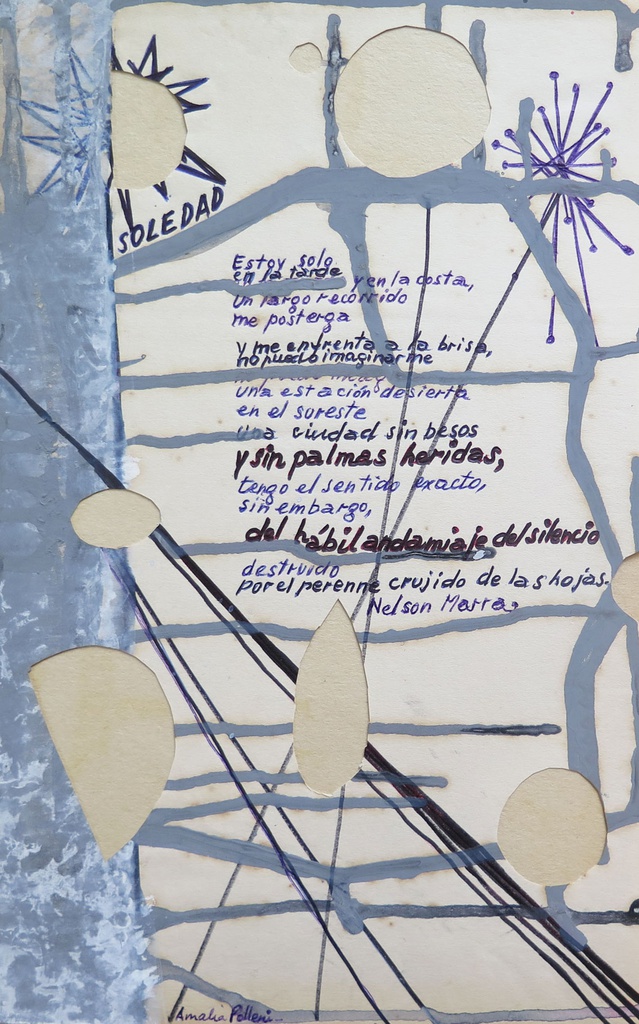 SOLEDAD
Estoy solo
en la tarde y en la costa,
un largo recorrido
me posterga
y me enfrenta a la brisa,
no puedo imaginarme
una estación desierta
en el sureste
una ciudad sin besos
y sin palmas heridas,
tengo el sentido exacto,
sin embargo,
del hábil andamiaje del silencio
destruido
por el perenne crujido de las hojas.
Nelson Marra.
Amalia Polleri